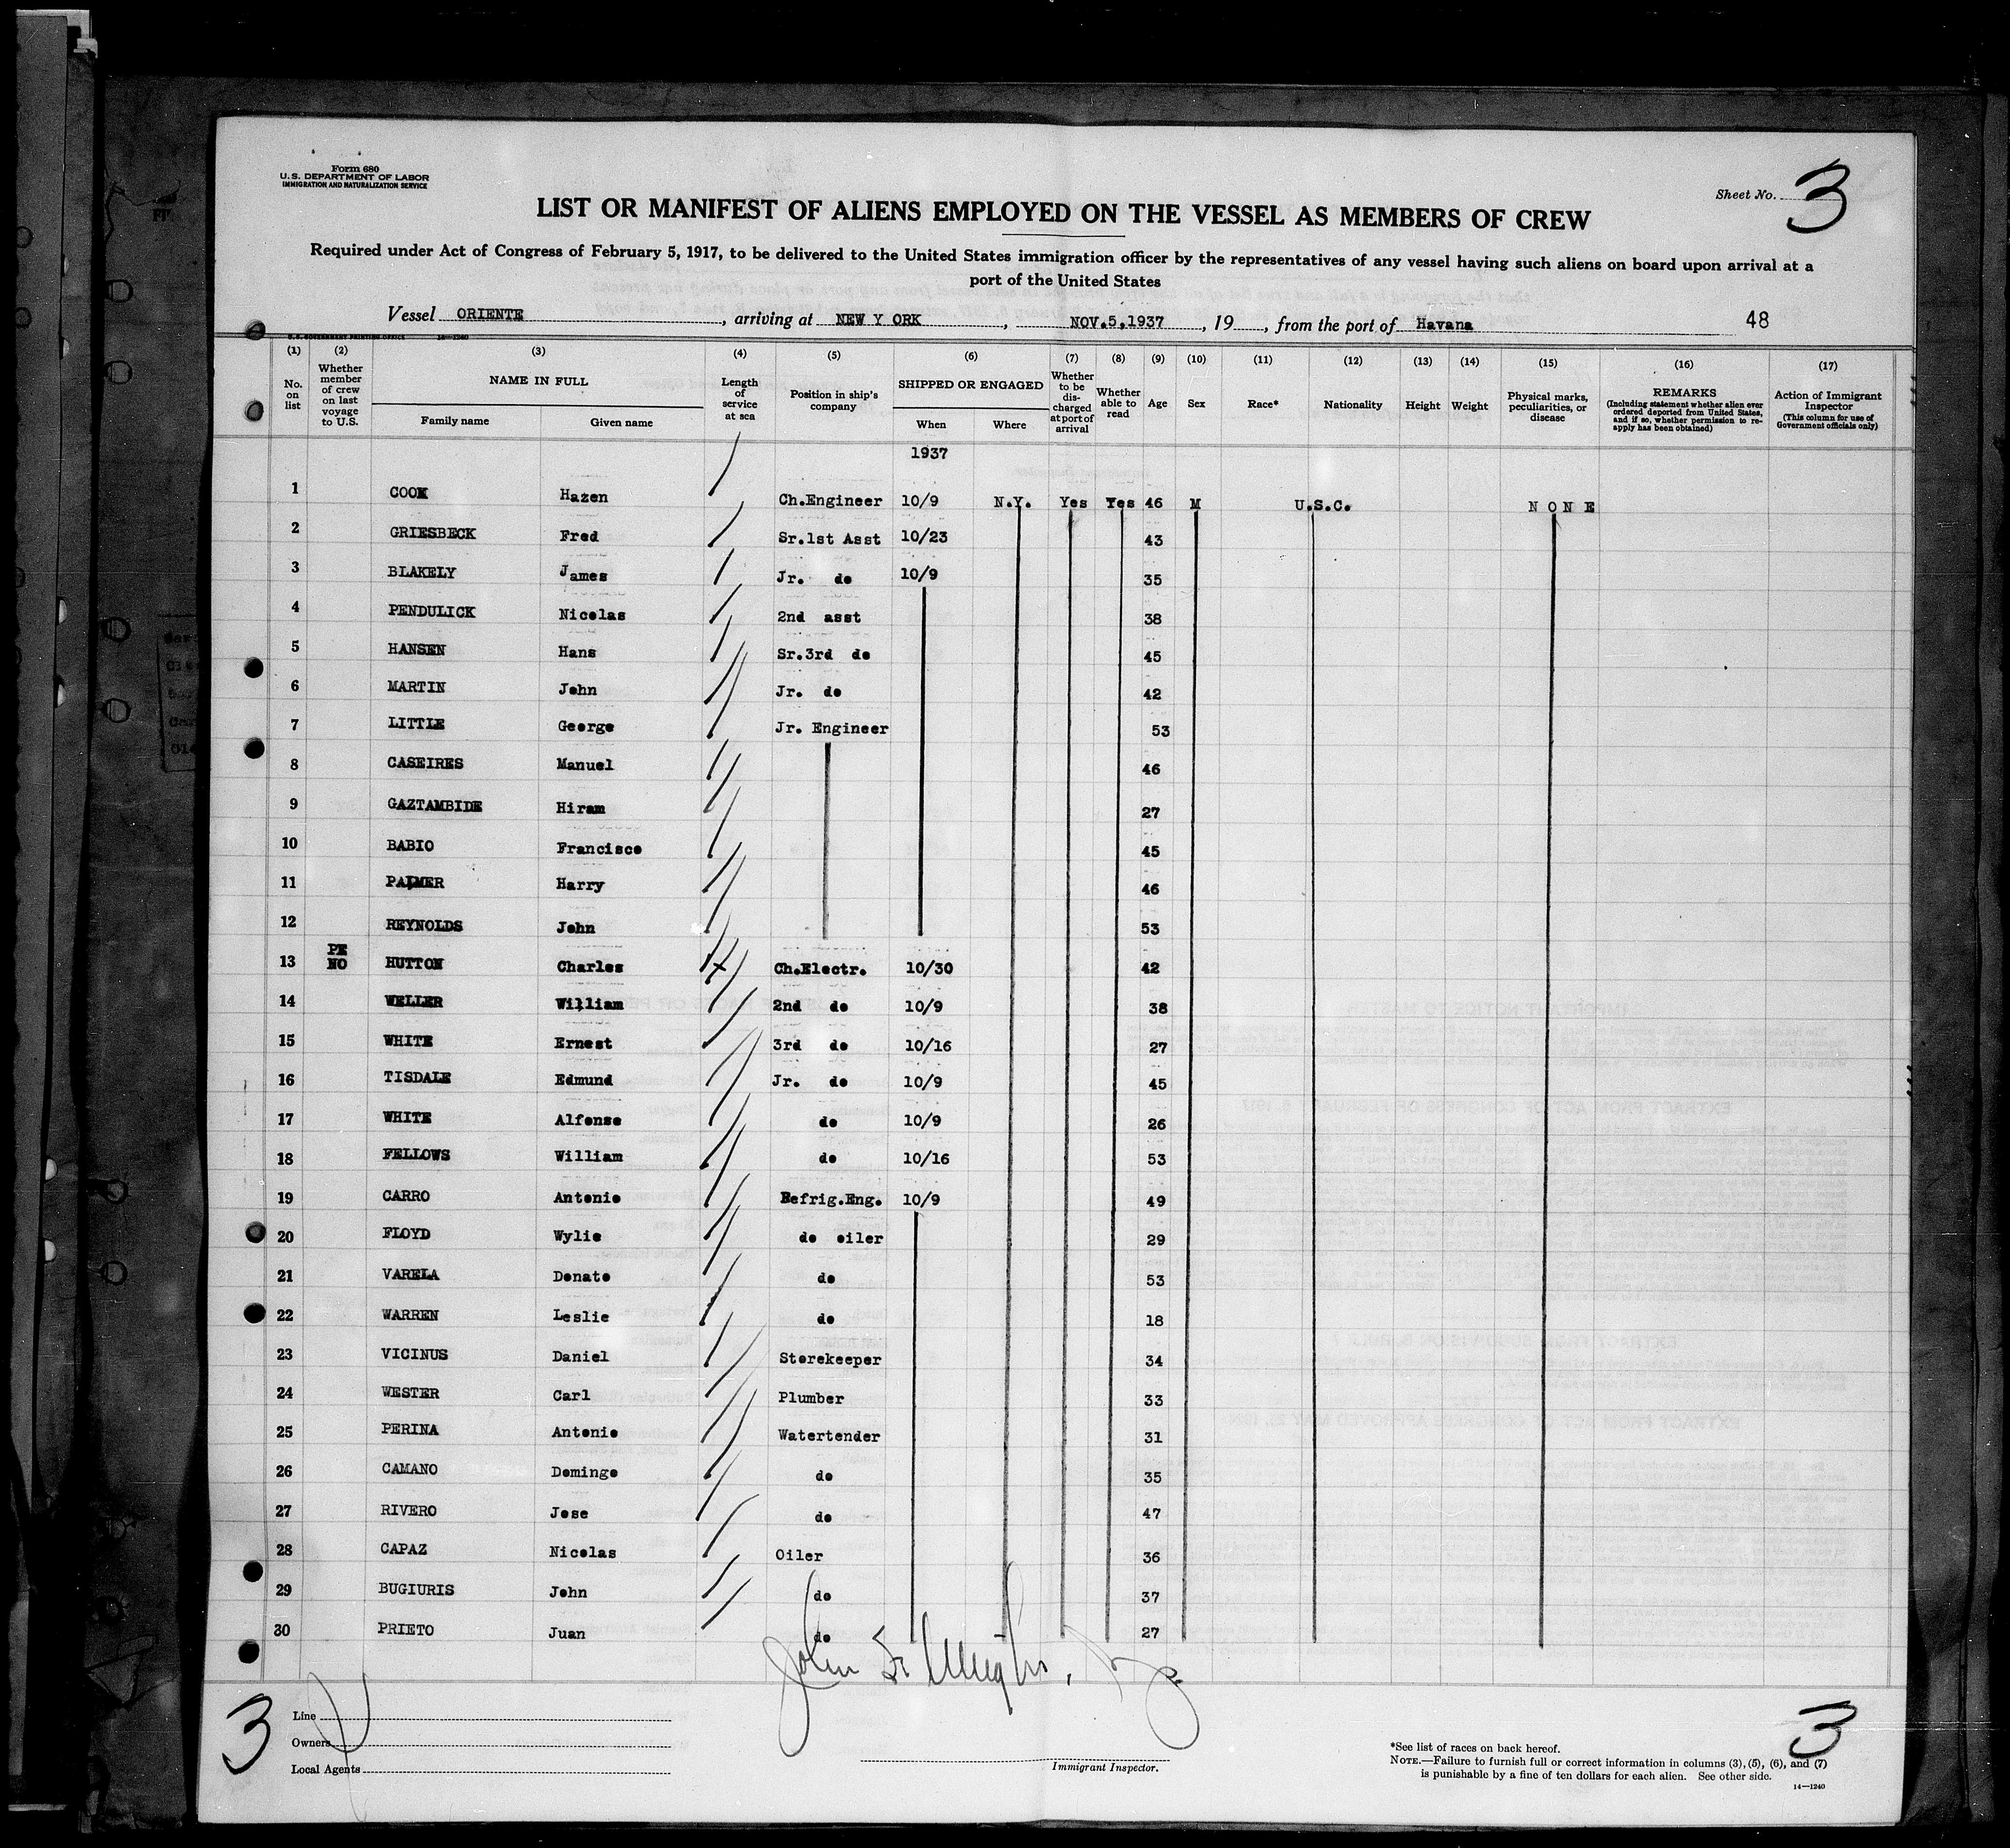 Form 680
U.S. DEPARTMENT OF LABOR
IMMIGRATION AND NATURALIZATION SERVICE
Sheet No. 3
LIST OR MANIFEST OF ALIENS EMPLOYED ON THE VESSEL AS MEMBERS OF CREW
Required under Act of Congress of February 5, 1917, to be delivered to the United States immigration officer by the representatives of any vessel having such aliens on board upon arrival at a
port of the United States
Vessel ORIENTE, arriving at NEW Y ORK, NOV.5,1937, 19, from the port of Havana 48
U.S. GOVERNMENT PRINTING OFFICE 14—1240
(1) (2) (3) (4) (5) (6) (7) (8) (9) (10) (11) (12) (13) (14) (15) (16) (17)
No. on list
Whether member of crew on last voyage to U.S.
NAME IN FULL
Family name Given name
Length of service at sea
Position in ship's company
SHIPPED OR ENGAGED
When Where
Whether to be discharged at port of arrival
Whether able to read
Age Sex Race* Nationality Height Weight
Physical marks, peculiarities, or disease
REMARKS
(Including statement whether alien ever ordered deported from United States, and if so, whether permission to re-apply has been obtained)
Action of Immigrant Inspector
(This column for use of Government officials only)
1937
1 COOK Hazen Ch.Engineer 10/9 N.Y. Yes Yes 46 M U.S.C. N O N E
2 GRIESBECK Fred Sr.1st Asst 10/23 43
3 BLAKELY James Jr. do 10/9 35
4 PENDULICK Nicolas 2nd asst 38
5 HANSEN Hans Sr.3rd do 45
6 MARTIN John Jr. do 42
7 LITTLE George Jr. Engineer 53
8 CASEIRES Manuel 46
9 GAZTAMBIDE Hiram 27
10 BABIO Francisco 45
11 PALMER Harry 46
12 REYNOLDS John 53
PE
13 NO HUTTON Charles Ch.Electr. 10/30 42
14 WELLER William 2nd do 10/9 38
15 WHITE Ernest 3rd do 10/16 27
16 TISDALE Edmund Jr. do 10/9 45
17 WHITE Alfonso do 10/9 26
18 FELLOWS William do 10/16 53
19 CARRO Antonio Refrig.Eng. 10/9 49
20 FLOYD Wylie do oiler 29
21 VARELA Donato do 53
22 WARREN Leslie do 18
23 VICINUS Daniel Storekeeper 34
24 WESTER Carl Plumber 33
25 PERINA Antonio Watertender 31
26 CAMANO Domingo do 35
27 RIVERO Jose do 47
28 CAPAZ Nicolas Oiler 36
29 BUGIURIS John do 37
30 PRIETO Juan do 27
John
3
Line
Owners
Local Agents
Immigrant Inspector.
3
*See list of races on back hereof.
NOTE.—Failure to furnish full or correct information in columns (3), (5), (6), and (7)
is punishable by a fine of ten dollars for each alien. See other side.
14—1240